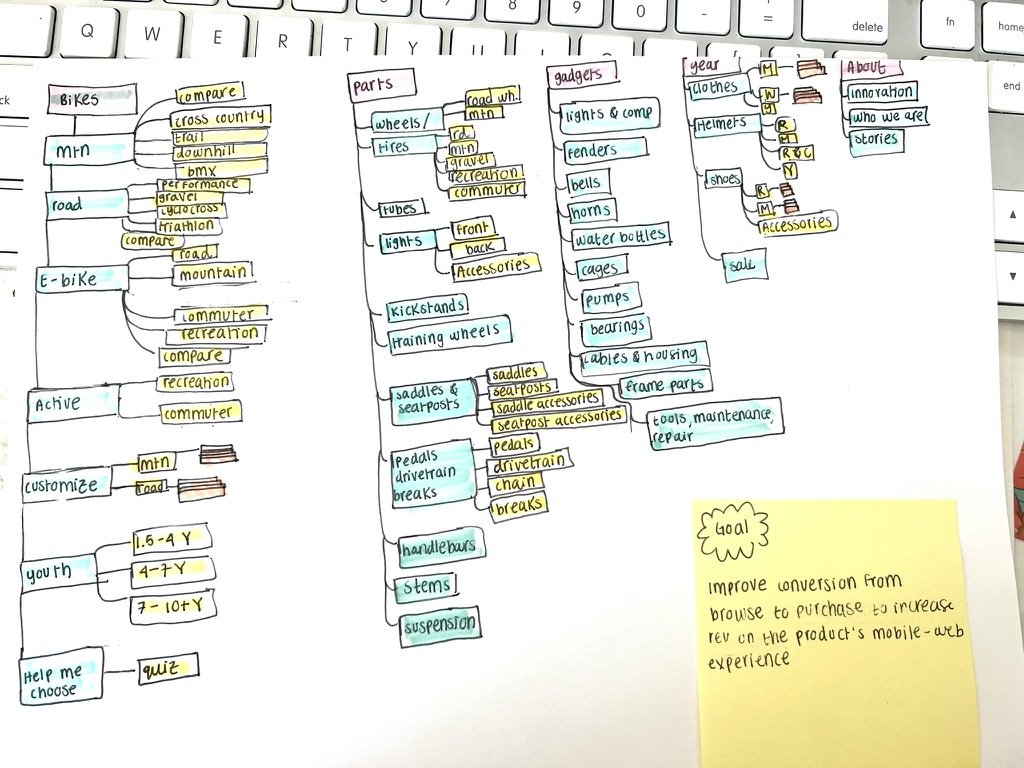 Q W E R T Y U
7 8 9 0 - + =
delete
fn
home
end
ck
BIKES
mtn
compare
cross country
trail
downhill
bmx
road
performance
gravel
cyclocross
triathlon
compare
E-bike
road
mountain
commuter
recreation
compare
Active
recreation
commuter
customize
mtn
road
youth
1.5-4 Y
4-7 Y
7-10+Y
Help me
choose
quiz
parts
wheels/
tires
road wh.
mtn
rd.
mtn
gravel
recreation
commuter
tubes
lights
front
back
Accessories
Kickstands
training wheels
saddles &
seatposts
saddles
seatposts
saddle accessories
seatpost accessories
pedals
drivetrain
breaks
pedals
drivetrain
chain
breaks
handlebars
stems
suspension
gadgets
lights & comp
fenders
bells
horns
water bottles
cages
pumps
bearings
cables & housing
frame parts
tools, maintenance,
repair
year
clothes
M
W
Y
Helmets
R
M
R&C
Y
shoes
R
M
Accessories
sale
About
innovation
who we are
stories
Goal
improve conversion from
browse to purchase to increase
rev on the product's mobile-web
experience